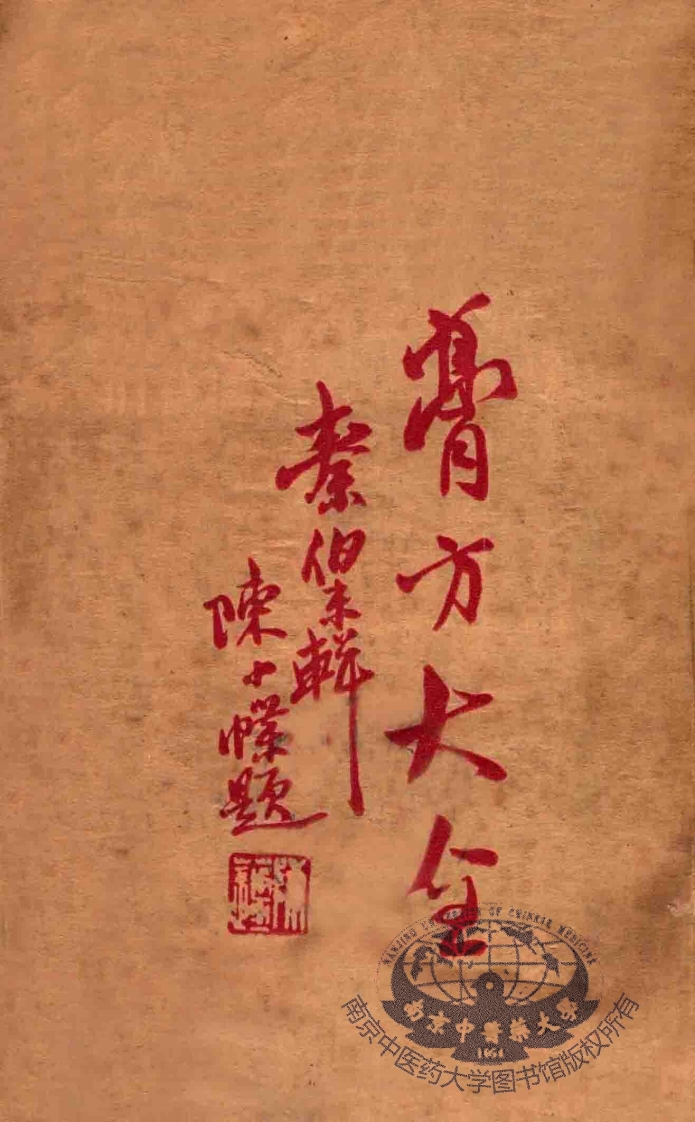 膏方大全
秦伯未輯
陳小蝶題
NANJING UNIVERSITY OF CHINESE MEDICINE
南京中醫藥大學
1954
南京中医药大学图书馆版权所有